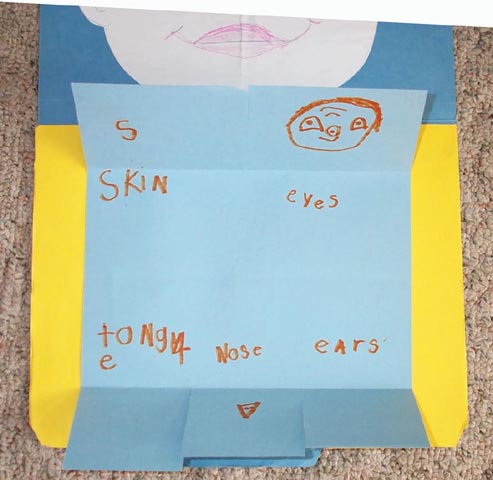 S
SKiN eyes
toNgu
e NOSe eArs